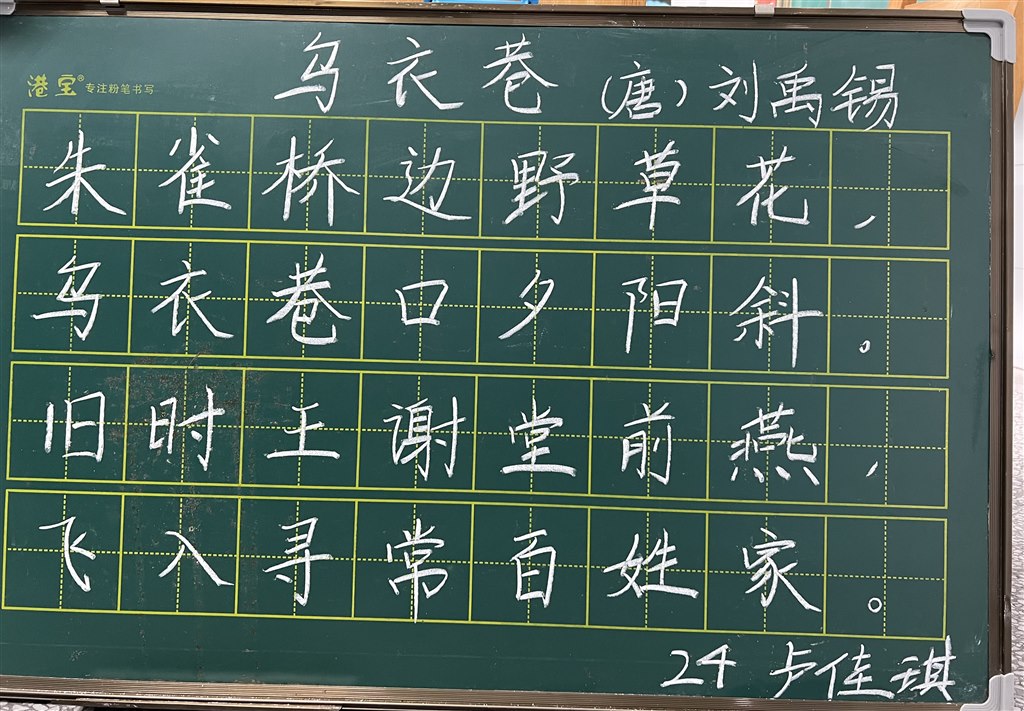 乌衣巷 （唐）刘禹锡
港宝® 专注粉笔书写
朱雀桥边野草花，
乌衣巷口夕阳斜。
旧时王谢堂前燕，
飞入寻常百姓家。
24 卢佳琪